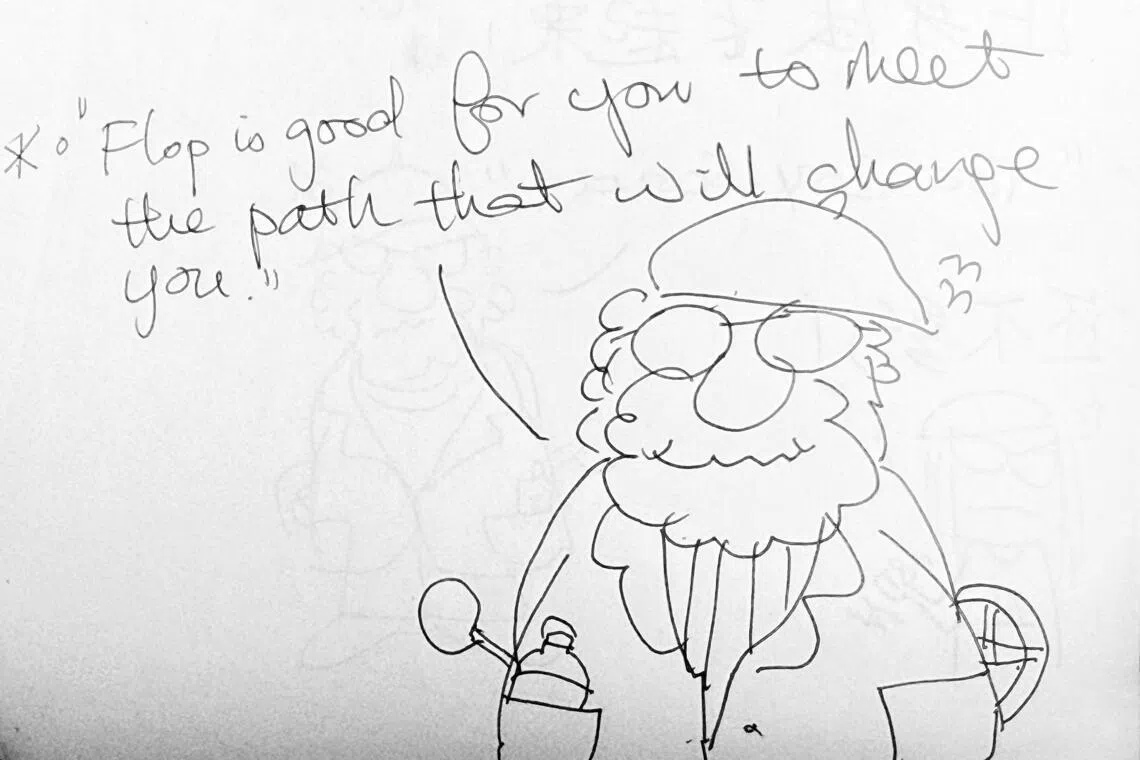 * "Flop is good for you to meet
the path that will change
you."